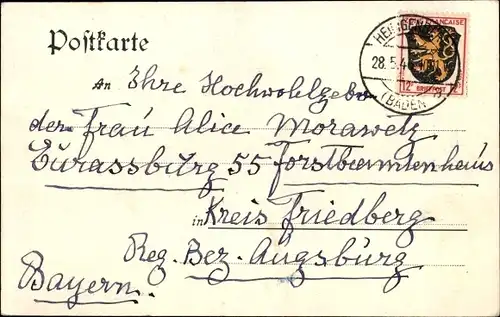 Postkarte
ZONE FRANÇAISE
28.5.4
(BADEN)
12 BRIEFPOST
An Ihre Hochwohlgebo
der Frau Alice Morawetz
Eurassburg 55 Forstbeamtenhaus
in Kreis Friedberg
Reg. Bez. Augsburg
Bayern.